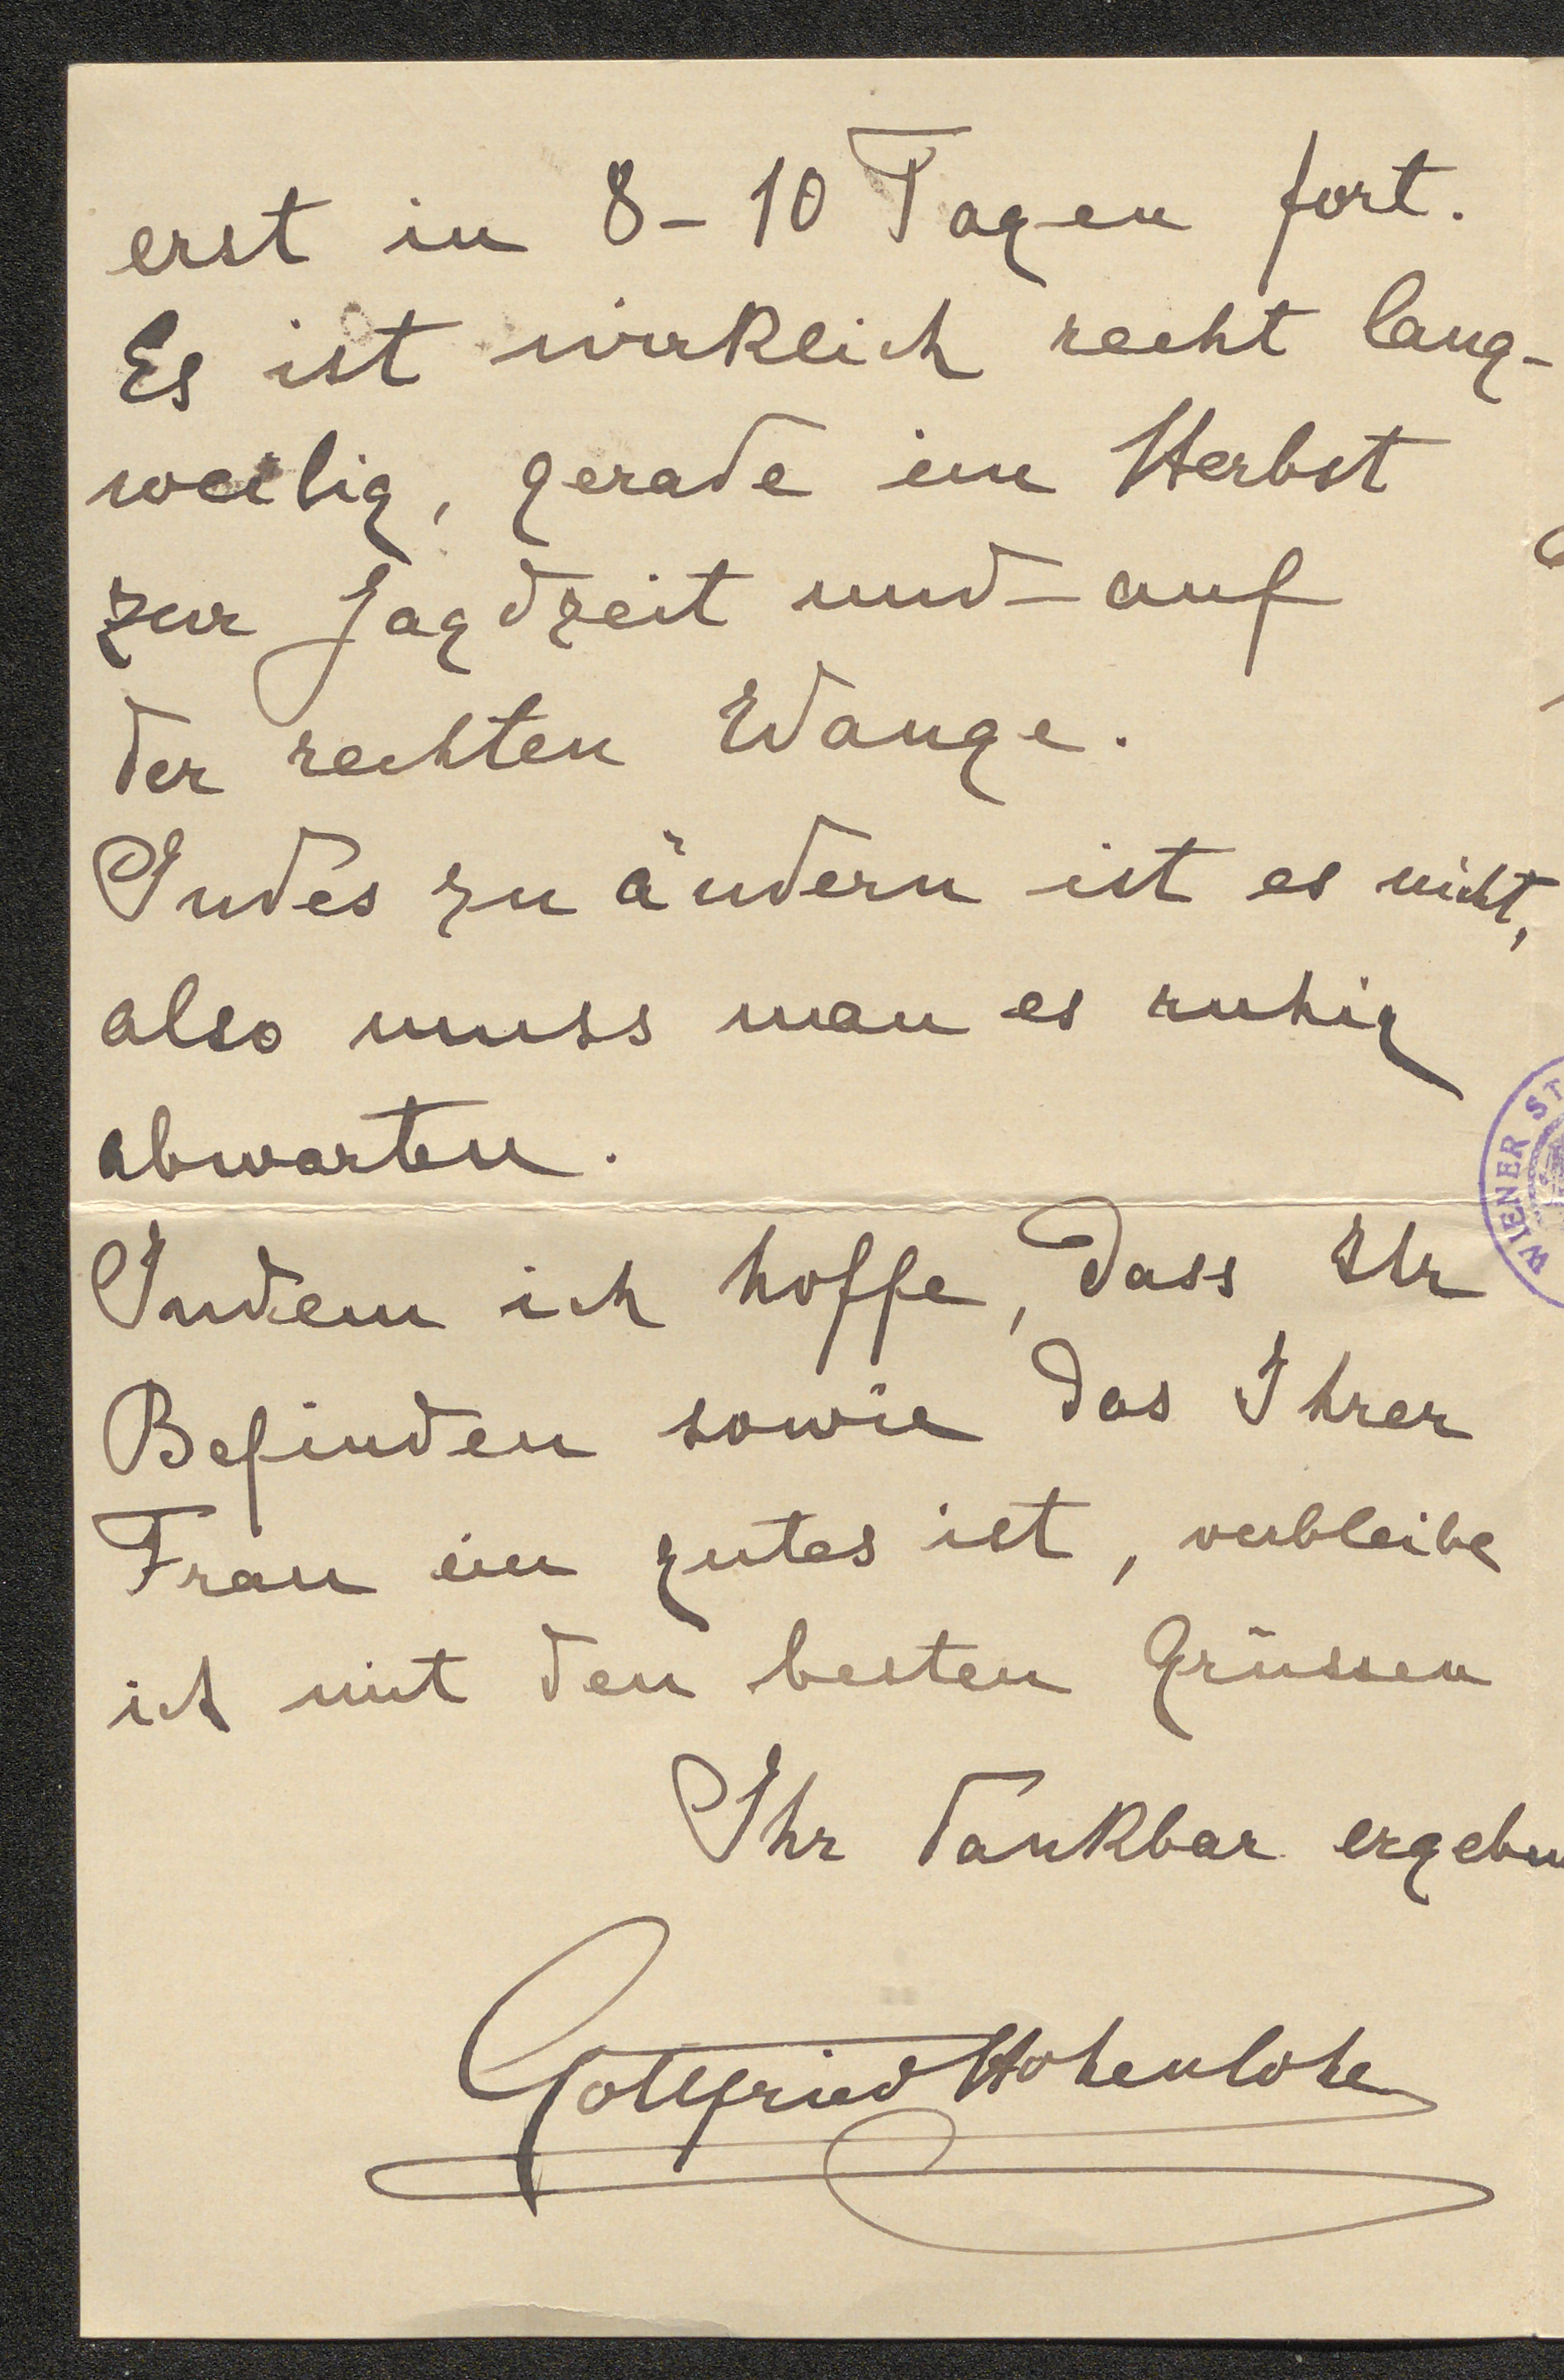 erst in 8-10 Tagen fort.
Es ist wirklich recht lang-
weilig, gerade im Herbst
zur Jagdzeit und - auf
der rechten Wange.
Indes zu ändern ist es nicht,
also muss man es ruhig
abwarten.
WIENER ST
Indem ich hoffe, dass Ihr
Befinden sowie das Ihrer
Frau ein gutes ist, verbleibe
ich mit den besten Grüssen
Ihr dankbar ergeben
Gottfried Hohenlohe